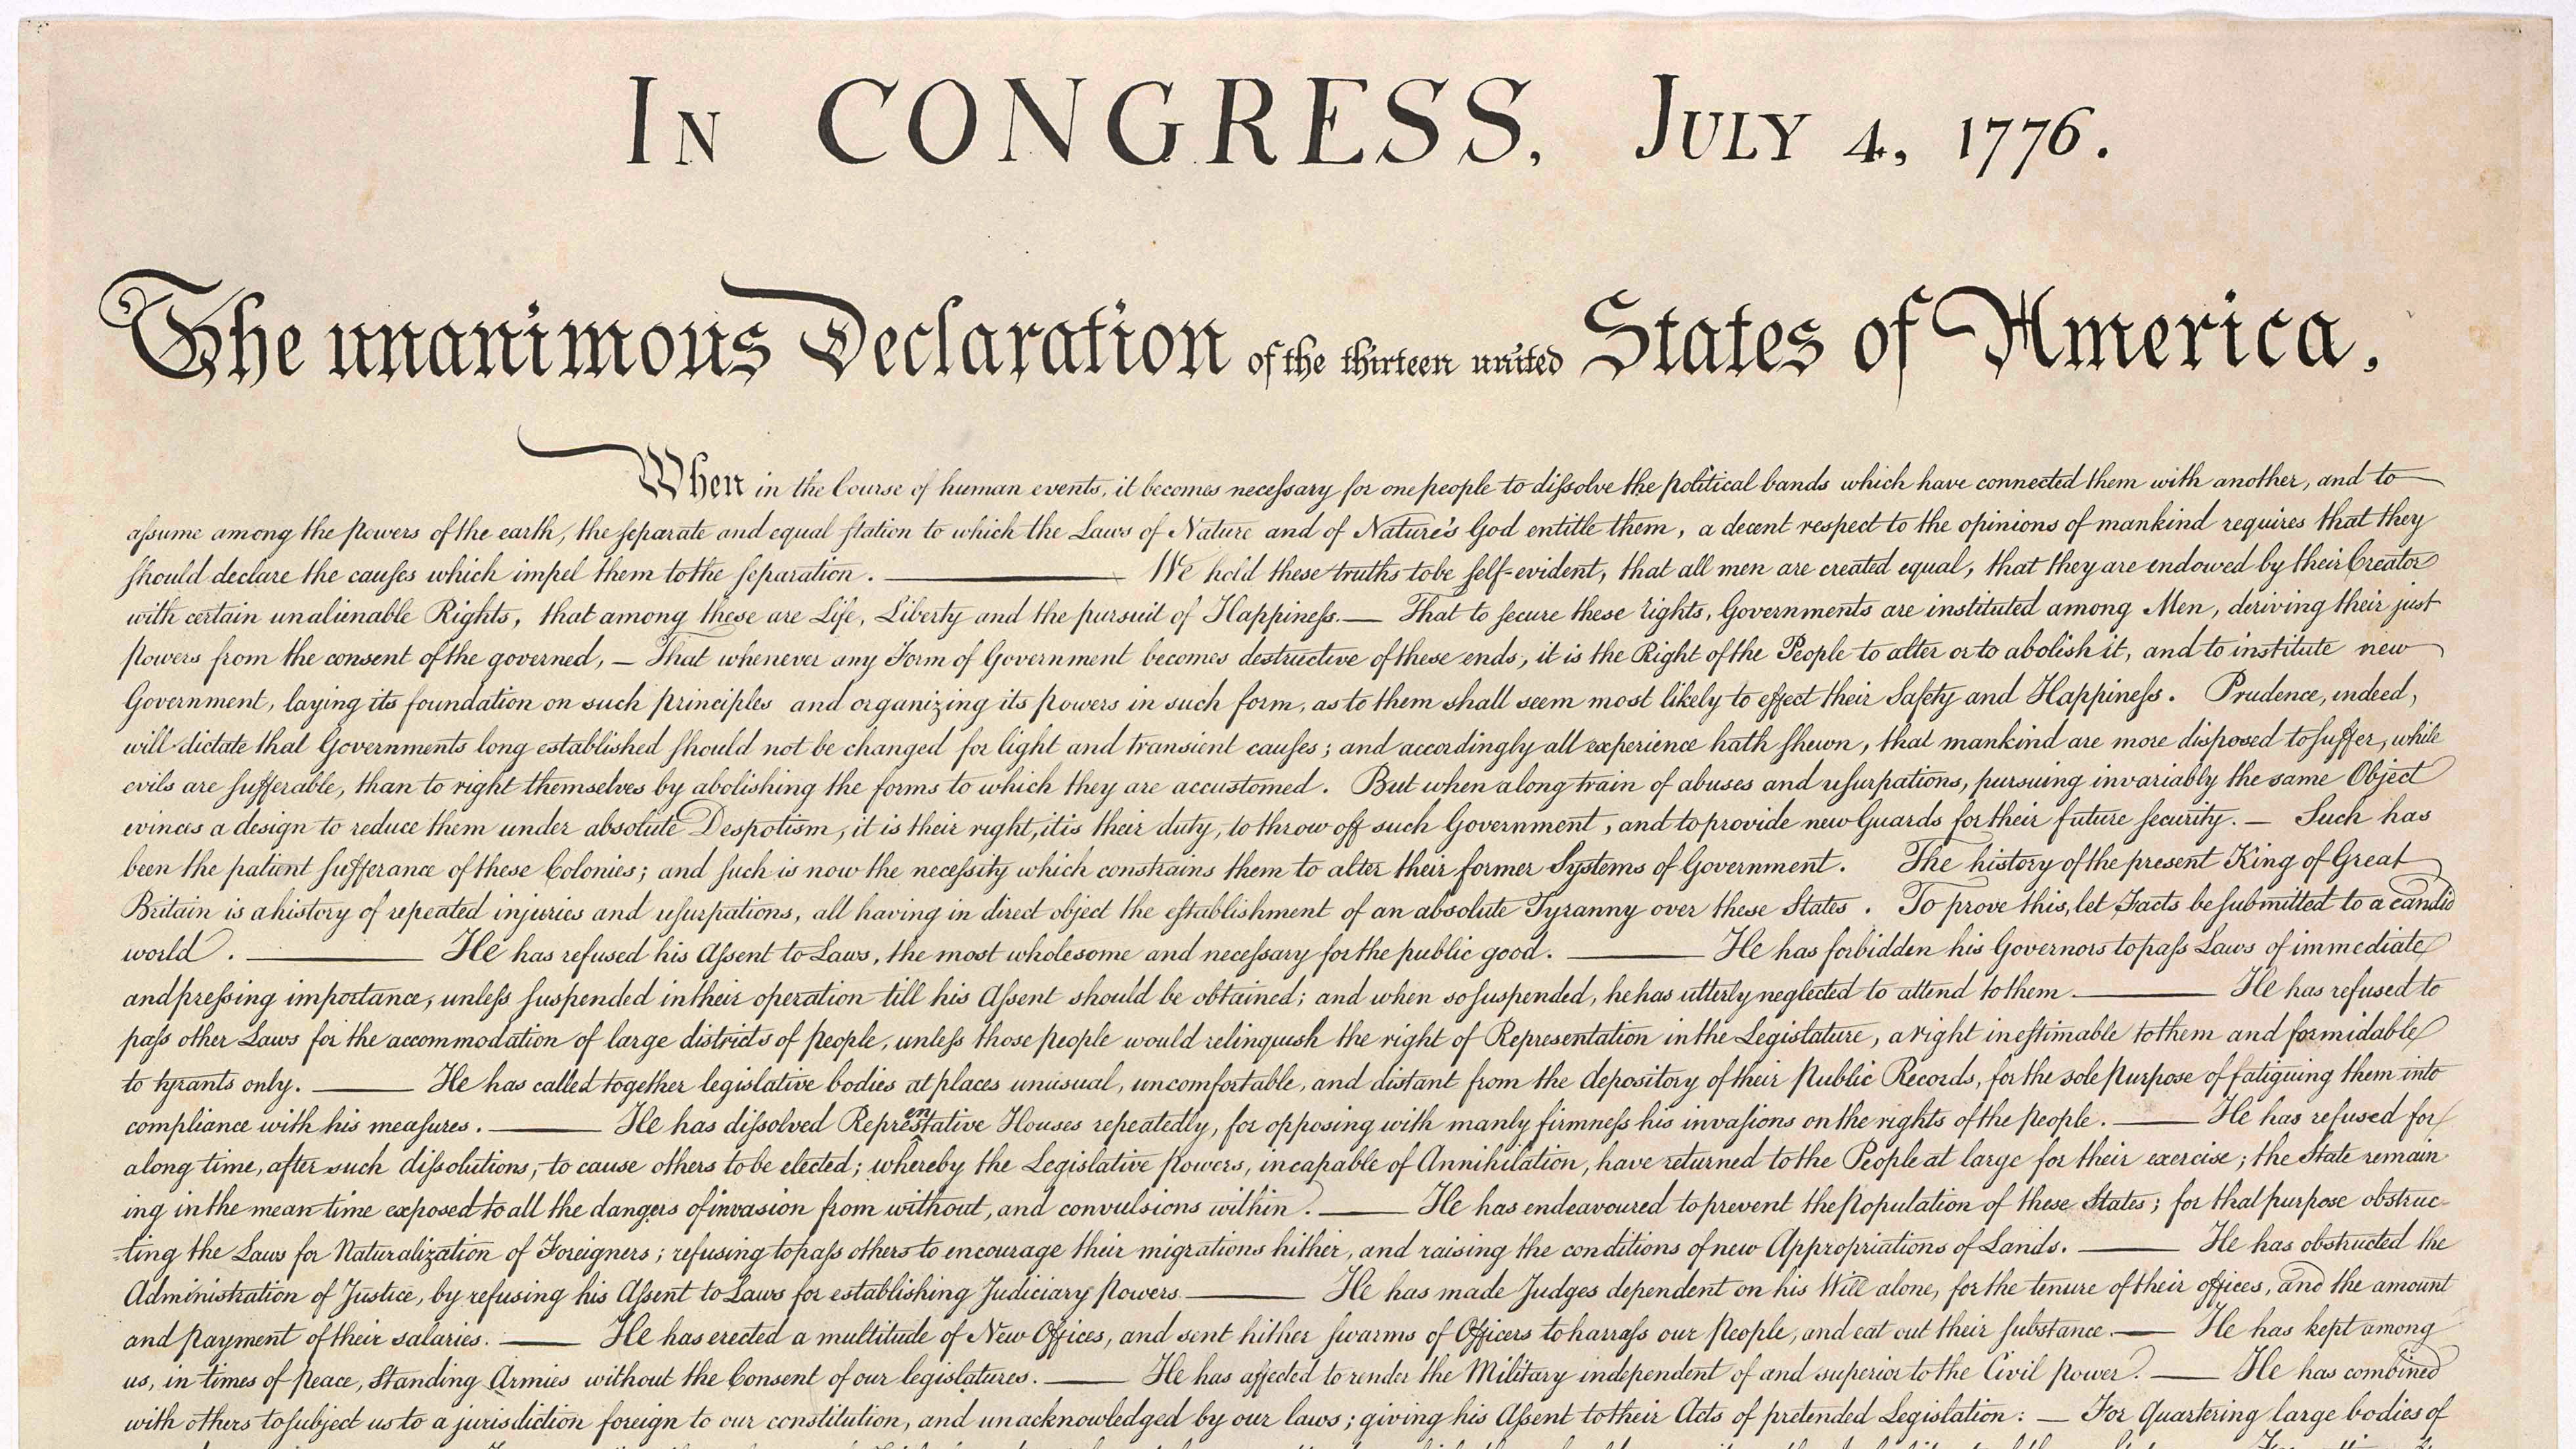 IN CONGRESS, JULY 4, 1776.
The unanimous Declaration of the thirteen united States of America,
When in the Course of human events, it becomes necessary for one people to dissolve the political bands which have connected them with another, and to
assume among the powers of the earth, the separate and equal station to which the Laws of Nature and of Nature's God entitle them, a decent respect to the opinions of mankind requires that they
should declare the causes which impel them to the separation. — We hold these truths to be self-evident, that all men are created equal, that they are endowed by their Creator
with certain unalienable Rights, that among these are Life, Liberty and the pursuit of Happiness. — That to secure these rights, Governments are instituted among Men, deriving their just
powers from the consent of the governed, — That whenever any Form of Government becomes destructive of these ends, it is the Right of the People to alter or to abolish it, and to institute new
Government, laying its foundation on such principles and organizing its powers in such form, as to them shall seem most likely to effect their Safety and Happiness. Prudence, indeed,
will dictate that Governments long established should not be changed for light and transient causes; and accordingly all experience hath shewn, that mankind are more disposed to suffer, while
evils are sufferable, than to right themselves by abolishing the forms to which they are accustomed. But when a long train of abuses and usurpations, pursuing invariably the same Object
evinces a design to reduce them under absolute Despotism, it is their right, it is their duty, to throw off such Government, and to provide new Guards for their future security. — Such has
been the patient sufferance of these Colonies; and such is now the necessity which constrains them to alter their former Systems of Government. The history of the present King of Great
Britain is a history of repeated injuries and usurpations, all having in direct object the establishment of an absolute Tyranny over these States. To prove this, let Facts be submitted to a candid
world. — He has refused his Assent to Laws, the most wholesome and necessary for the public good. — He has forbidden his Governors to pass Laws of immediate
and pressing importance, unless suspended in their operation till his Assent should be obtained; and when so suspended, he has utterly neglected to attend to them. — He has refused to
pass other Laws for the accommodation of large districts of people, unless those people would relinquish the right of Representation in the Legislature, a right inestimable to them and formidable
to tyrants only. — He has called together legislative bodies at places unusual, uncomfortable, and distant from the depository of their public Records, for the sole purpose of fatiguing them into
compliance with his measures. — He has dissolved Representative Houses repeatedly, for opposing with manly firmness his invasions on the rights of the people. — He has refused for
a long time, after such dissolutions, to cause others to be elected; whereby the Legislative powers, incapable of Annihilation, have returned to the People at large for their exercise; the State remain-
ing in the mean time exposed to all the dangers of invasion from without, and convulsions within. — He has endeavoured to prevent the population of these States; for that purpose obstruc-
ting the Laws for Naturalization of Foreigners; refusing to pass others to encourage their migrations hither, and raising the conditions of new Appropriations of Lands. — He has obstructed the
Administration of Justice, by refusing his Assent to Laws for establishing Judiciary powers. — He has made Judges dependent on his Will alone, for the tenure of their offices, and the amount
and payment of their salaries. — He has erected a multitude of New Offices, and sent hither swarms of Officers to harrass our people, and eat out their substance. — He has kept among
us, in times of peace, Standing Armies without the Consent of our legislatures. — He has affected to render the Military independent of and superior to the Civil power. — He has combined
with others to subject us to a jurisdiction foreign to our constitution, and unacknowledged by our laws; giving his Assent to their Acts of pretended Legislation: — For Quartering large bodies of